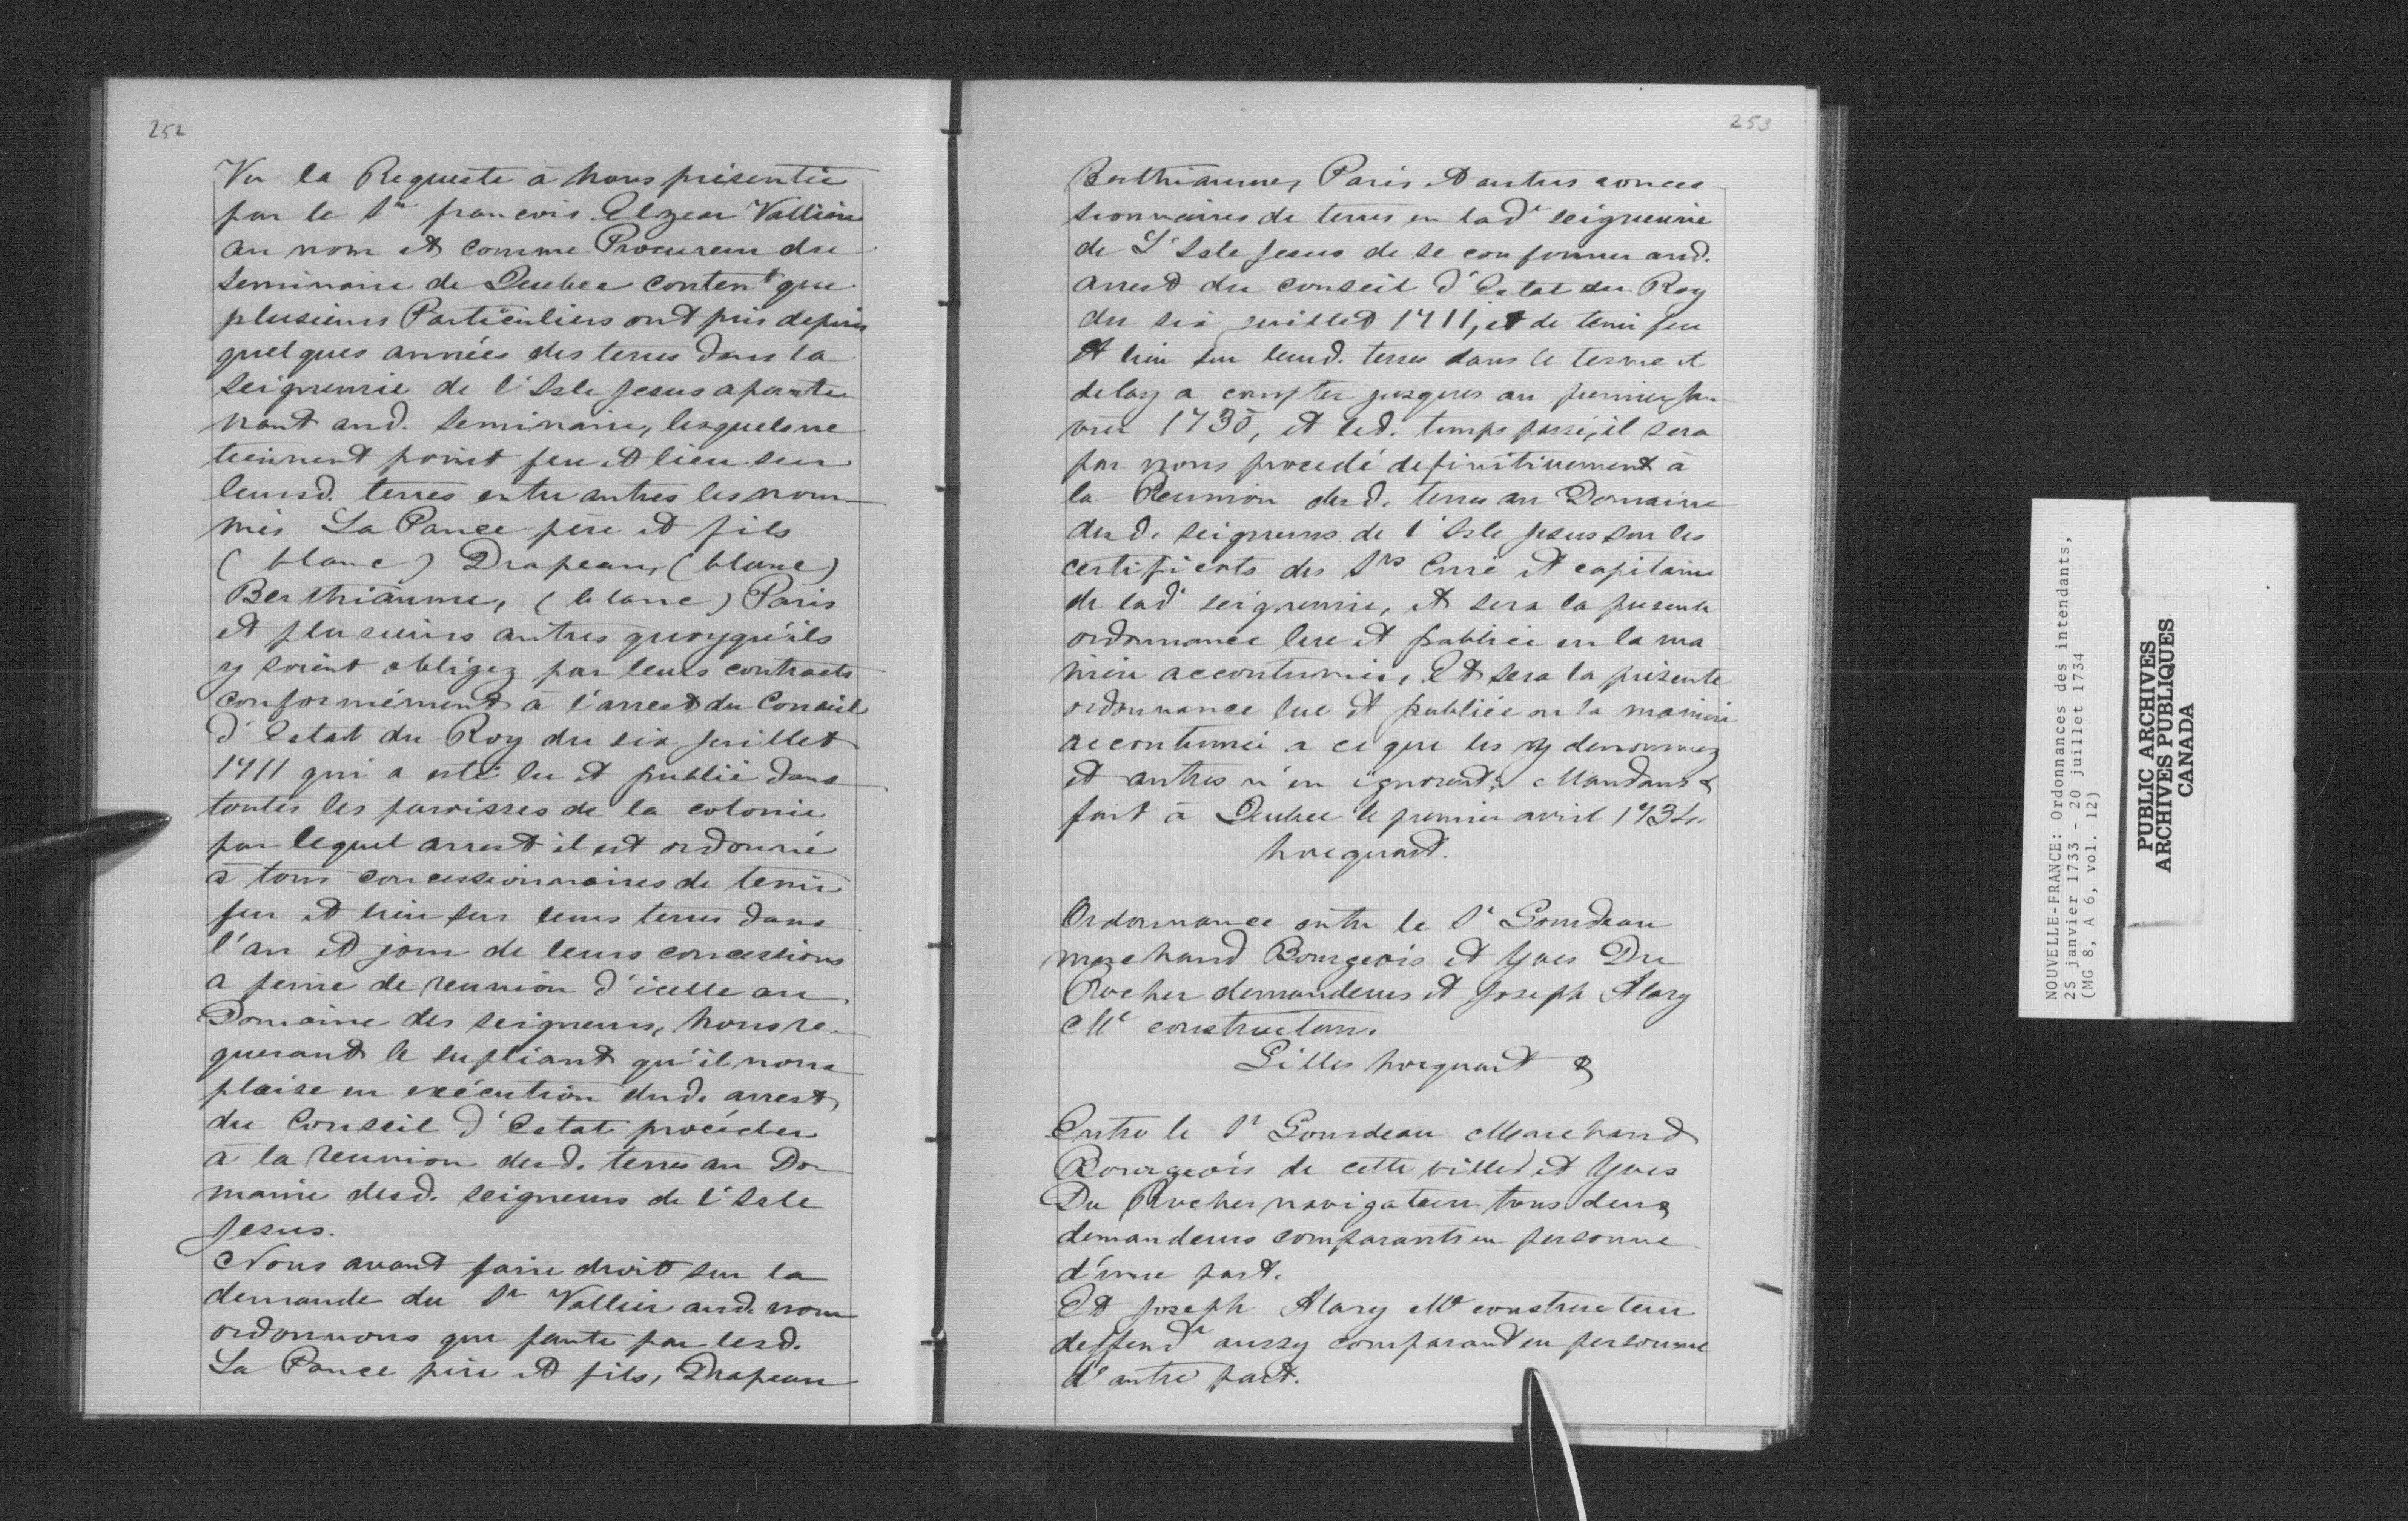 252
Vu la Requeste à nous présentée
par le Sr francois Elzear Vallier
au nom et comme Procureur du
seminaire de Quebec content que
plusieurs Particuliers ont pris depuis
quelques années des terres dans la
seigneurie de l'Isle Jesus aparte
nant aud. Seminaire, lesquels ne
tiennent point feu et lieu sur
leursd. terres entre autres les nom-
més La Pance père et fils
(blanc) Drapeau, (blanc)
Berthiaume, (blanc) Paris
et plusieurs autres quoyqu'ils
y soient obligez par leurs contracts
conformément à l'arrest du Conseil
d'Estat du Roy du six juillet
1711 qui a esté lu et publié dans
toutes les parroisses de la colonie
par lequel arrest il est ordonné
à tous concessionnaires de tenir
feu et lieu sur leurs terres dans
l'an et jour de leurs concessions
a peine de reunion d'icelle au
Domaine des seigneurs, nous re-
querant le supliant qu'il nous
plaise en exécution dud. arrest
du Conseil d'Estat procéder
à la reunion desd. terres au Do-
maine desd. seigneurs de l'Isle
Jesus.
Nous avant faire droit sur la
demande du Sr Vallier aud. nom
ordonnons que faute par lesd.
La Pance père et fils, Drapeau
253
Berthiaume, Paris et autres conces-
sionnaires de terres en lade seigneurie
de L'Isle Jesus de se conformer aud.
arrest du conseil d'Estat du Roy
du six juillet 1711, et de tenir feu
et lieu sur leursd. terres dans le terme et
delay a compter jusques au premier jan-
vier 1735, et led. temps passé, il sera
par nous procedé definitivement à
la Reunion desd. terres au Domaine
desd. seigneurs de l'Isle Jesus sur les
certificats des Srs Curé et capitaine
de lade seigneurie, et sera la presente
ordonnance lue et publiée en la ma
niere accoutumée, Et sera la présente
ordonnance lue et publiée en la maniere
accoutumée a ce que les cy denommez
et autres n'en ignorent; Mandons &
fait à Quebec le premier avril 1734
hocquart.
Ordonnance entre le Sr Gourdeau
marchand Bourgeois et Yves Du
Rocher demandeurs et Joseph Alary
Me constructeur.
Gilles hocquart &
Entre le Sr Gourdeau Marchand
Bourgeois de cette ville et Yves
Du Rocher navigateur tous deux
demandeurs comparants en personne
d'une part.
Et Joseph Alary Me constructeur
deffendr aussy comparant en personne
d'autre part.
NOUVELLE-FRANCE: Ordonnances des intendants,
25 janvier 1733 - 20 juillet 1734
(MG 8, A 6, vol. 12)
PUBLIC ARCHIVES
ARCHIVES PUBLIQUES
CANADA